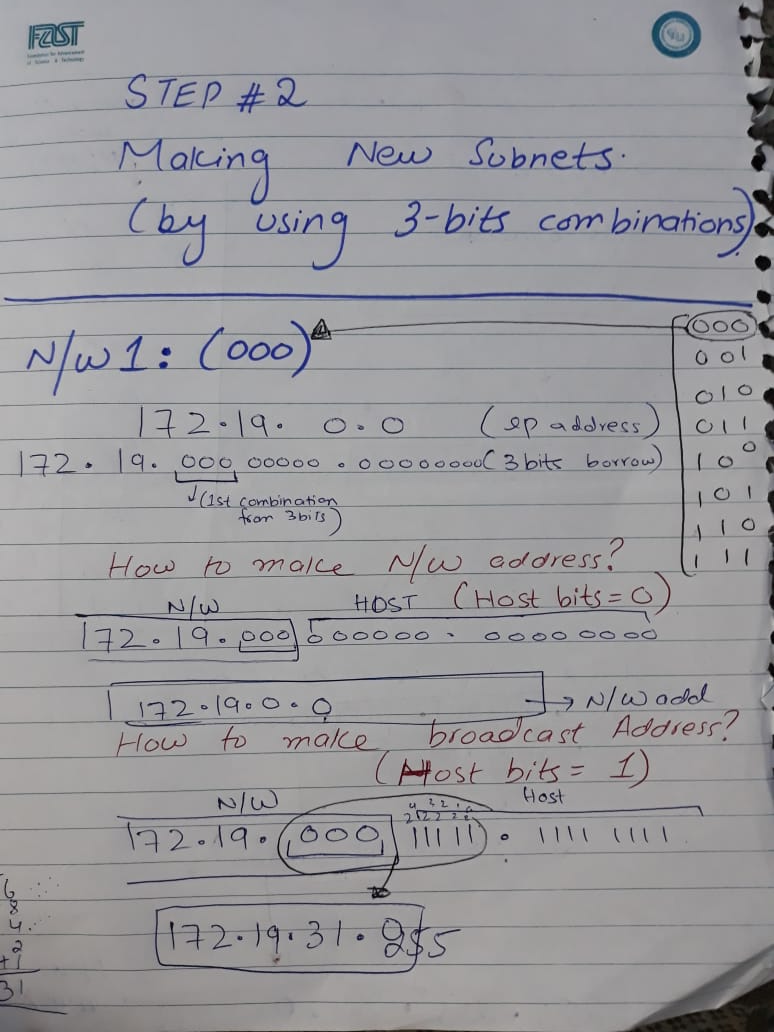 FAST
Foundation for Advancement
of Science & Technology
STEP #2
Making New Subnets.
(by using 3-bits combinations)
N/W1: (000)
000
001
010
011
100
101
110
111
172.19. 0.0 (ip address)
172. 19. 000 00000 . 00000000 (3 bits borrow)
(1st combination
from 3bits)
How to make N/W address?
N/W HOST (Host bits=0)
172.19.000 000000 . 00000000
172.19.0.0 → N/W add
How to make broadcast Address?
(Host bits= 1)
N/W Host
4 3 2 1 0
2 2 2 2 2
172.19. 000 11111 . 1111 1111
172.19.31.255
6
8
4
2
+1
31